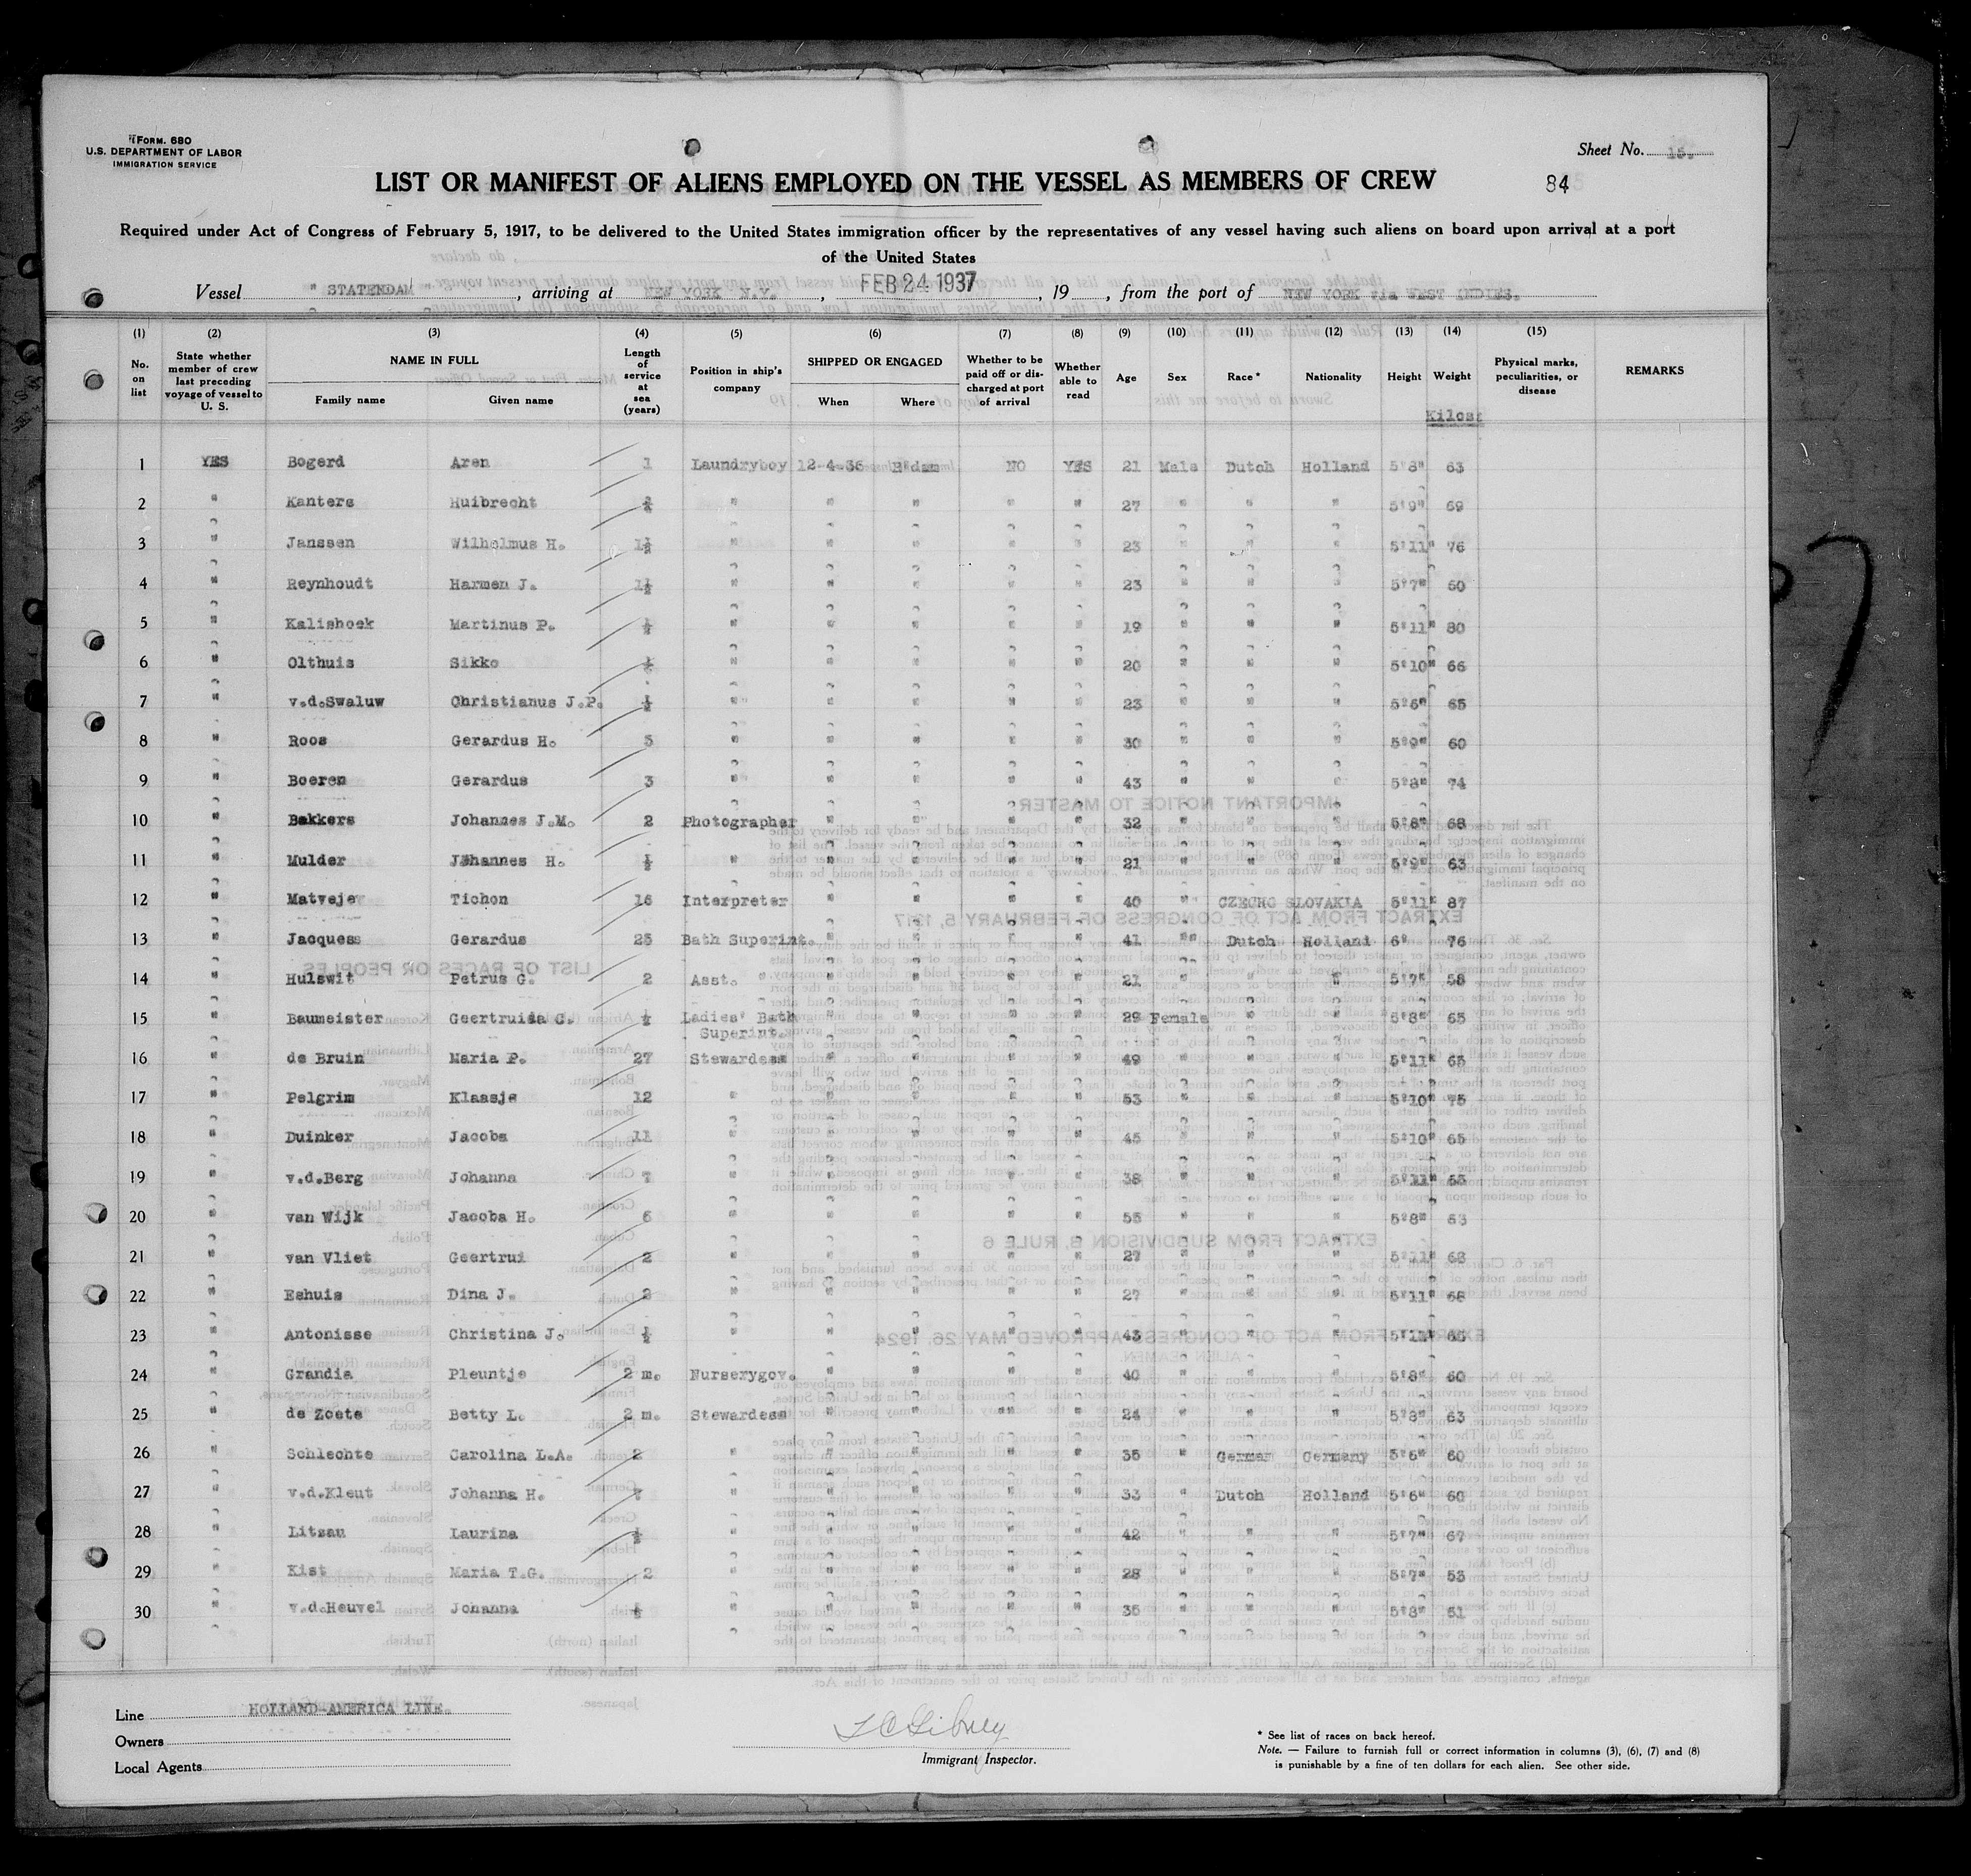 Form. 680
U.S. DEPARTMENT OF LABOR
IMMIGRATION SERVICE
Sheet No. 15.
LIST OR MANIFEST OF ALIENS EMPLOYED ON THE VESSEL AS MEMBERS OF CREW
84
Required under Act of Congress of February 5, 1917, to be delivered to the United States immigration officer by the representatives of any vessel having such aliens on board upon arrival at a port
of the United States
Vessel " STATENDAM " , arriving at NEW YORK N.Y. , FEB 24 1937 , 19 , from the port of NEW YORK via WEST INDIES.
(1) (2) (3) (4) (5) (6) (7) (8) (9) (10) (11) (12) (13) (14) (15)
No. on list State whether member of crew last preceding voyage of vessel to U. S. NAME IN FULL Family name Given name Length of service at sea (years) Position in ship's company SHIPPED OR ENGAGED When Where Whether to be paid off or discharged at port of arrival Whether able to read Age Sex Race * Nationality Height Weight Physical marks, peculiarities, or disease REMARKS
Kilos
1 YES Bogerd Aren 1 Laundryboy 12-4-36 R'dam NO YES 21 Male Dutch Holland 5'8" 63
2 " Kanters Huibrecht " " " " " 27 " " " 5'9" 69
3 " Janssen Wilhelmus H. 1½ " " " " " 23 " " " 5'11" 76
4 " Reynhoudt Harmen J. 1½ " " " " " 23 " " " 5'7" 60
5 " Kalishoek Martinus P. ½ " " " " " 19 " " " 5'11" 80
6 " Olthuis Sikko " " " " " 20 " " " 5'10" 66
7 " v.d.Swaluw Christianus J.P. ½ " " " " " 23 " " " 5'6" 65
8 " Roos Gerardus H. " " " " " 30 " " " 5'9" 60
9 " Boeren Gerardus 3 " " " " " 43 " " " 5'8" 74
10 " Bakkers Johannes J.M. 2 Photographer " " " " 32 " " " 5'8" 68
11 " Mulder Johannes H. ½ " " " " " 21 " " " 5'9" 63
12 " Matveje Tichon 16 Interpreter " " " " 40 " CZECHO SLOVAKIA 5'11" 87
13 " Jacques Gerardus 25 Bath Superint. " " " " 41 " Dutch Holland 6' 76
14 " Hulswit Petrus G. 2 Asst. " " " " " 21 " " " 5'7" 58
15 " Baumeister Geertruida C. ½ Ladies' Bath Superint. " " " " 29 Female " " 5'8" 65
16 " de Bruin Maria P. 27 Stewardess " " " " 49 " " " 5'11" 65
17 " Pelgrim Klaasje 12 " " " " " 53 " " " 5'10" 75
18 " Duinker Jacoba 11 " " " " " 45 " " " 5'10" 65
19 " v.d.Berg Johanna 7 " " " " " 38 " " " 5'11" 65
20 " van Wijk Jacoba H. 6 " " " " " 55 " " " 5'8" 63
21 " van Vliet Geertrui 2 " " " " " 27 " " " 5'11" 68
22 " Eshuis Dina J. 2 " " " " " 27 " " " 5'11" 68
23 " Antonisse Christina J. ½ " " " " " 43 " " " 66
24 " Grandia Pleuntje 2 m. Nurserygov. " " " " 40 " " " 5'8" 60
25 " de Zoete Betty L. 2 m. Stewardess " " " " 24 " " " 5'8" 63
26 " Schlechte Carolina L.A. 2 " " " " " 35 " German Germany 5'6" 60
27 " v.d.Kleut Johanna H. " " " " " 33 " Dutch Holland 5'6" 60
28 " Litzau Laurina ½ " " " " " 42 " " " 5'7" 67
29 " Kist Maria T.G. 2 " " " " " 28 " " " 5'7" 53
30 " v.d.Heuvel Johanna ½ " " " " " 35 " " " 5'8" 51
Line HOLLAND-AMERICA LINE.
Owners
Local Agents
Immigrant Inspector.
* See list of races on back hereof.
Note. — Failure to furnish full or correct information in columns (3), (6), (7) and (8)
is punishable by a fine of ten dollars for each alien. See other side.